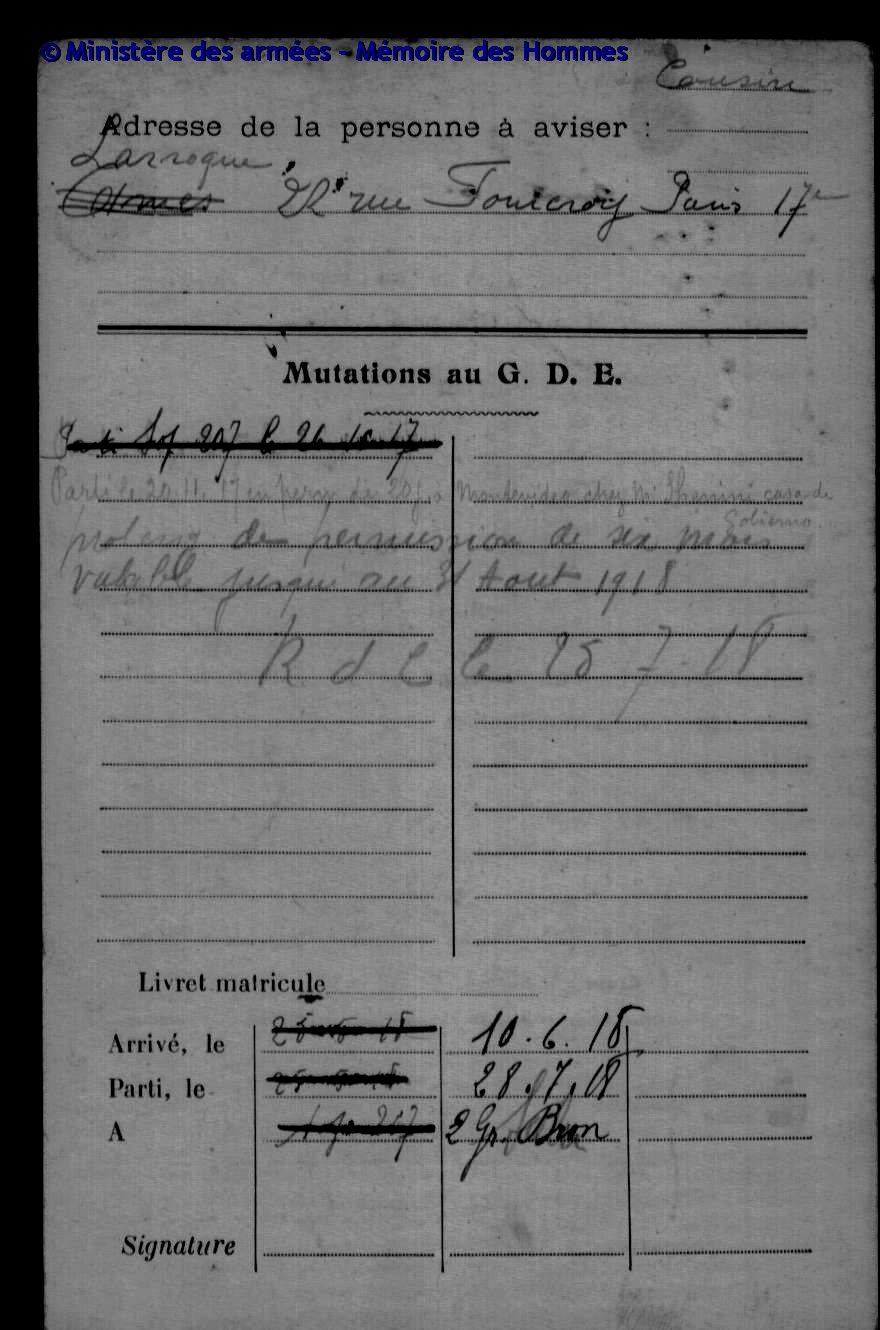 © Ministère des armées - Mémoire des Hommes
Cousin
Adresse de la personne à aviser :
Larroque
22 rue Fourcroy Paris 17e
Mutations au G. D. E.
Parti Sop 207 le 26 10 17
Parti le 20 11 17 en perm de 20 j à Montevideo chez Mr casa de
Gobierno
prolong de permission de six mois
valable jusqu'au 31 Aout 1918
R d C le 25 7-18
Livret matricule
Arrivé, le 10.6.18
Parti, le 28.7.18
A 2 Gr. Bron
Signature